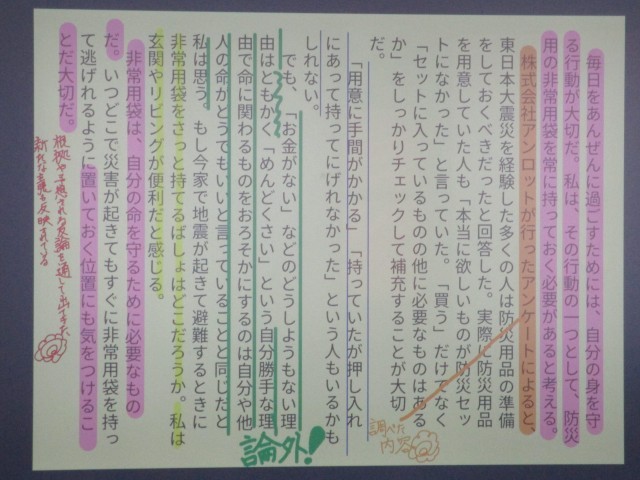 毎日をあんぜんに過ごすためには、自分の身を守
る行動が大切だ。私は、その行動の一つとして、防災
用の非常用袋を常に持っておく必要があると考える。
株式会社アンロットが行ったアンケートによると、
東日本大震災を経験した多くの人は防災用品の準備
をしておくべきだったと回答した。実際に防災用品
を用意していた人も「本当に欲しいものが防災セッ
トになかった」と言っていた。「買う」だけでなく
「セットに入っているものの他に必要なものはある
か」をしっかりチェックして補充することが大切
だ。
「用意に手間がかかる」「持っていたが押し入れ
にあって持ってにげれなかった」という人もいるかも
しれない。
でも、「お金がない」などのどうしようもない理
由はともかく「めんどくさい」という自分勝手な理
由で命に関わるものをおろそかにするのは自分や他
人の命がどうでもいいと言っていることと同じだと
私は思う。もし今家で地震が起きて避難するときに
非常用袋をさっと持てるばしょはどこだろうか。私は
玄関やリビングが便利だと感じる。
非常用袋は、自分の命を守るために必要なもの
だ。いつどこで災害が起きてもすぐに非常用袋を持っ
て逃げれるように置いておく位置にも気をつけるこ
とだ大切だ。
調べた
内容
論外!
根拠や予想される反論を通して出てきた
新たな意見も反映されている